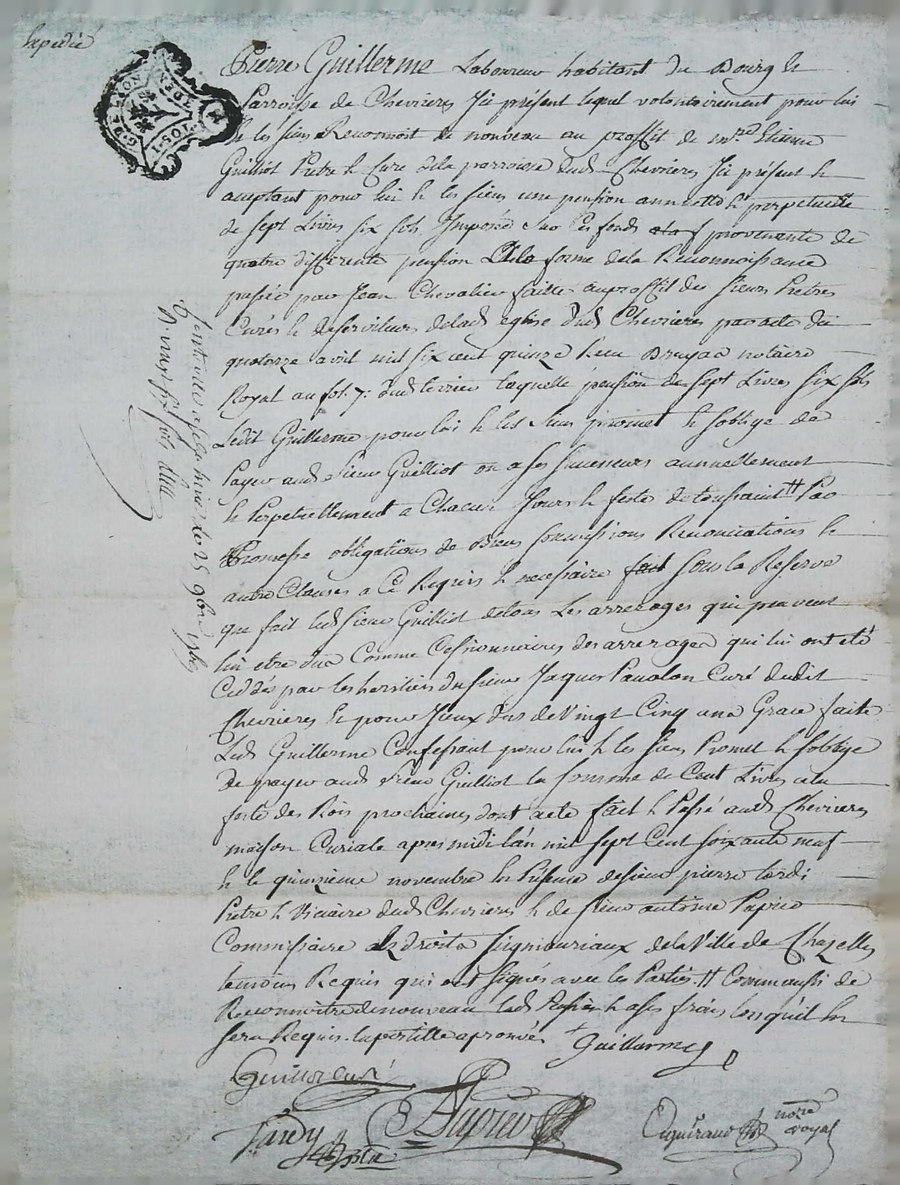 Expedié
G. DE LYON
Pierre Guillerme Laboureur habitant du Bourg &
Parroisse de Chevrieres Ici présent lequel volontairement pour lui
& les siens Reconnoit de nouveau au proffit de mre Etienne
Guilliot Pretre & Curé de la parroisse dud Chevrieres Ici présent &
acceptant pour lui & les siens une pension annuelle & perpetuelle
de sept Livres six sols Imposée sur les fonds provenants de
quatre differente pension De la forme de la Reconnoissance
passée par Jean Chevalier faitte au proffit des sieurs Pretres
Curés & deserviteurs de lad eglise dud Chevrieres par acte du
quatorze avril mil six cent quinze Reçu notaire
Royal au fol. 7: dud terrier laquelle pension de sept Livres six sols
Ledit Guillerme pour lui & les siens promet & s'oblige de
Payer aud sieur Guilliot ou a ses successeurs annuellement
& Perpetuellement a Chacun Jour & feste de toussaint # Par
Promesse obligations de Biens soumissions Renonciations &
autre Clauses a Ce Requis & necessaire fait sous la Reserve
que fait led sieur Guilliot de tous Les arrerages qui peuvent
lui etre dus Comme Cessionnaires des arrerages qui lui ont eté
Ceddés par les heritiers du sieur Jaques Curé dudit
Chevrieres & pour Iceux dus de Vingt Cinq ans Grace faite
Led Guillerme Confessant pour lui & les siens Promet & s'oblige
De payer aud sieur Guilliot la somme de Cent Livres a la
feste des Rois prochaines dont acte fait & Passé aud Chevrieres
maison Curiale apres midi l'an mil sept Cent soixante neuf
& le quinzieme novembre En Présence de sieur pierre tardi
Pretre & Vicaire dud Chevrieres & de sieur antoine Papire
Commissaire ez droits seigniouriaux de la Ville de Chazelles
temoins Requis qui ont signés avec les Parties. # Comme aussi de
Reconnoitre de nouveau lad Pension & a ses frais lors qu'il En
sera Requis. apostille aprouvée
Guillerme
Guilliot curé
Tardy
notre
royal
Controllé a le 25 9bre 1769